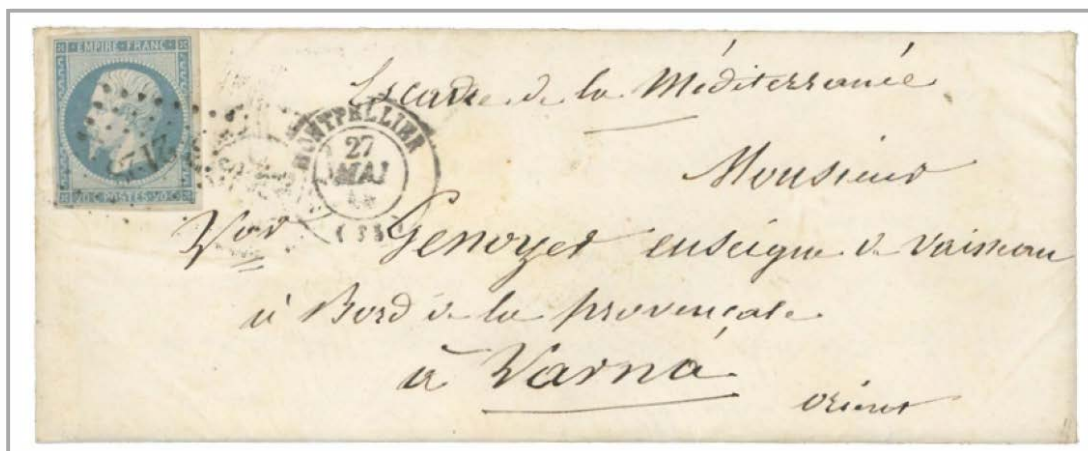 EMPIRE · FRANC ·
20 C POSTES 20 C
2122
MONTPELLIER
27
MAI
Escadre de la Méditerranée
Monsieur
Vor Genoyer enseigne de vaisseau
à Bord de la provençale
à Varna
orient